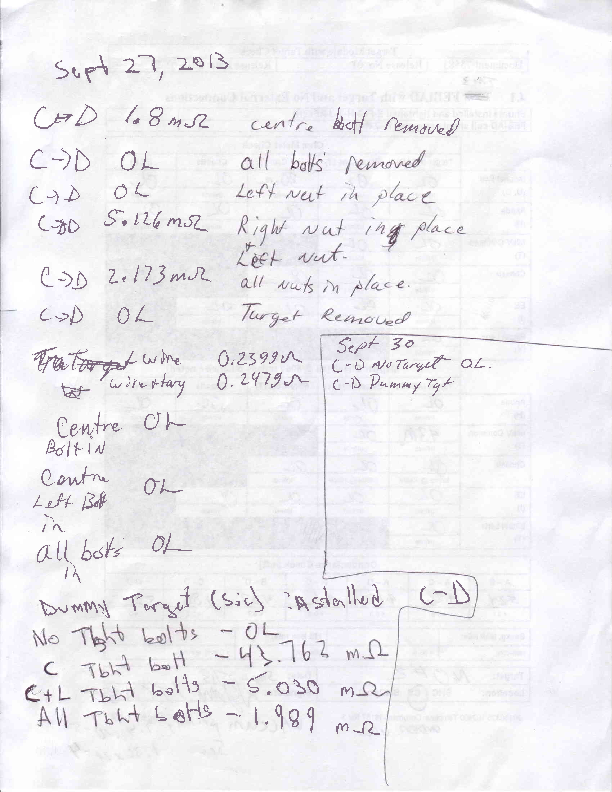 Sept 27, 2013
C→D 1.8 mΩ centre bolt removed
C→D OL all bolts removed
C→D OL Left nut in place
C→D 5.126 mΩ Right nut in place
+ Left nut.
C→D 2.173 mΩ all nuts in place.
C→D OL Target Removed
wire 0.2399 Ω
wire + targ 0.2479 Ω
Sept 30
C-D No Target OL.
C-D Dummy Tgt
Centre OL
Bolt IN
Centre
Left Bolt OL
in
all bolts OL
in
Dummy Target (Sic) installed C-D
No Tbht bolts - OL
C Tbht bolt - 43.762 mΩ
C+L Tbht bolts - 5.030 mΩ
All Tbht bolts - 1.989 mΩ